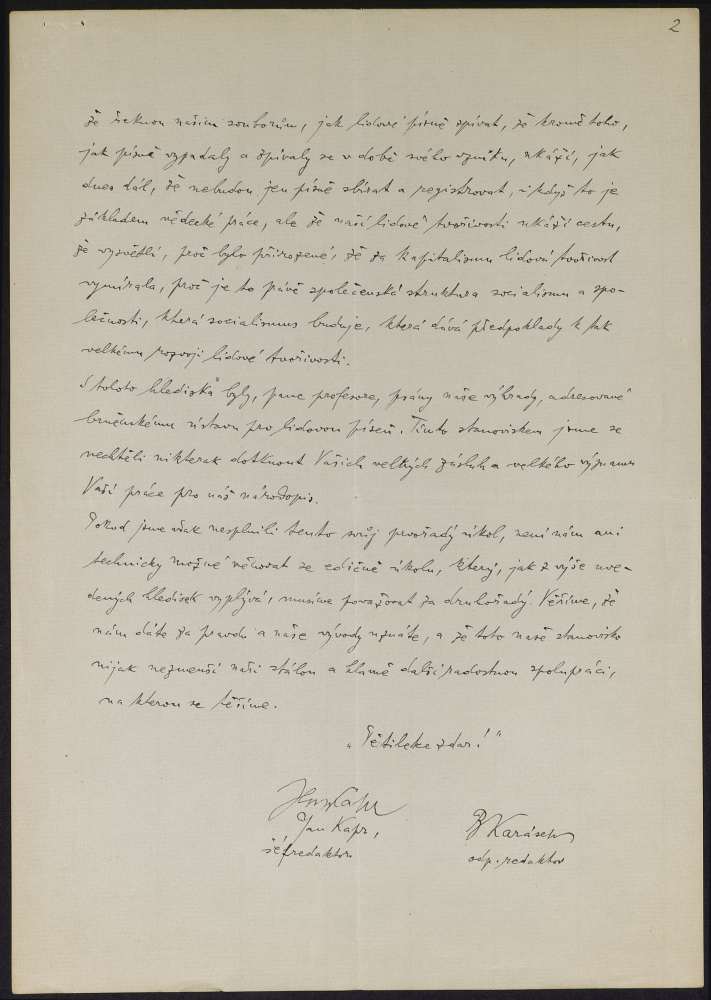 2
že řeknou našim souborům, jak lidové písně zpívat, že kromě toho,
jak písně vypadaly a zpívaly se v době svého vzniku, ukáží, jak
dnes dál, že nebudou jen písně sbírat a registrovat, i když to je
základem vědecké práce, ale že naší lidové tvořivosti ukáží cestu,
že vysvětlí, proč bylo přirozené, že za kapitalismu lidová tvořivost
vymírala, proč je to právě společenská struktura socialismu a spo-
lečnosti, která socialismus buduje, která dává předpoklady k tak
velkému rozvoji lidové tvořivosti.
S tohoto hlediska byly, pane profesore, psány naše výhrady, adresované
brněnskému ústavu pro lidovou píseň. Tímto stanoviskem jsme se
nechtěli nikterak dotknout Vašich velkých zásluh a velkého významu
Vaší práce pro náš národopis.
Pokud jsme však nesplnili tento svůj prvořadý úkol, není nám ani
technicky možné věnovat se edičně úkolu, který, jak z výše uve-
dených hledisek vyplývá, musíme považovat za druhořadý. Věříme, že
nám dáte za pravdu a naše vývody uznáte, a že toto naše stanovisko
nijak nezmenší naši stálou a hlavně další radostnou spolupráci,
na kterou se těšíme.
"Pětiletce zdar!"
Jan Kapr,
šéfredaktor
B Karásek
odp. redaktor